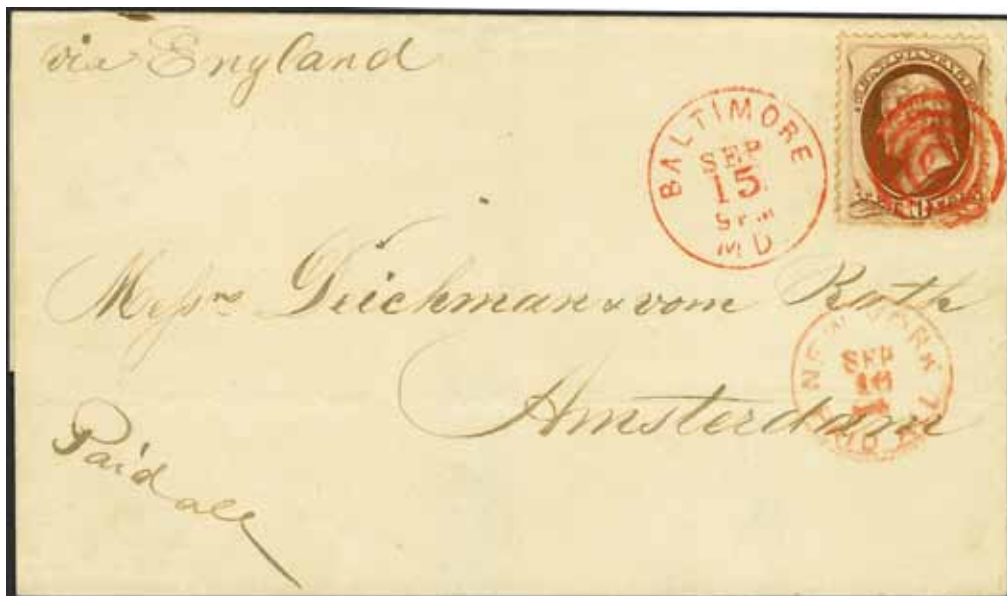 via England
BALTIMORE
SEP
15
9 P M
MD
Messrs Deichman & vom Rath
NEW YORK
SEP
16
PAID ALL
Amsterdam
Paid all